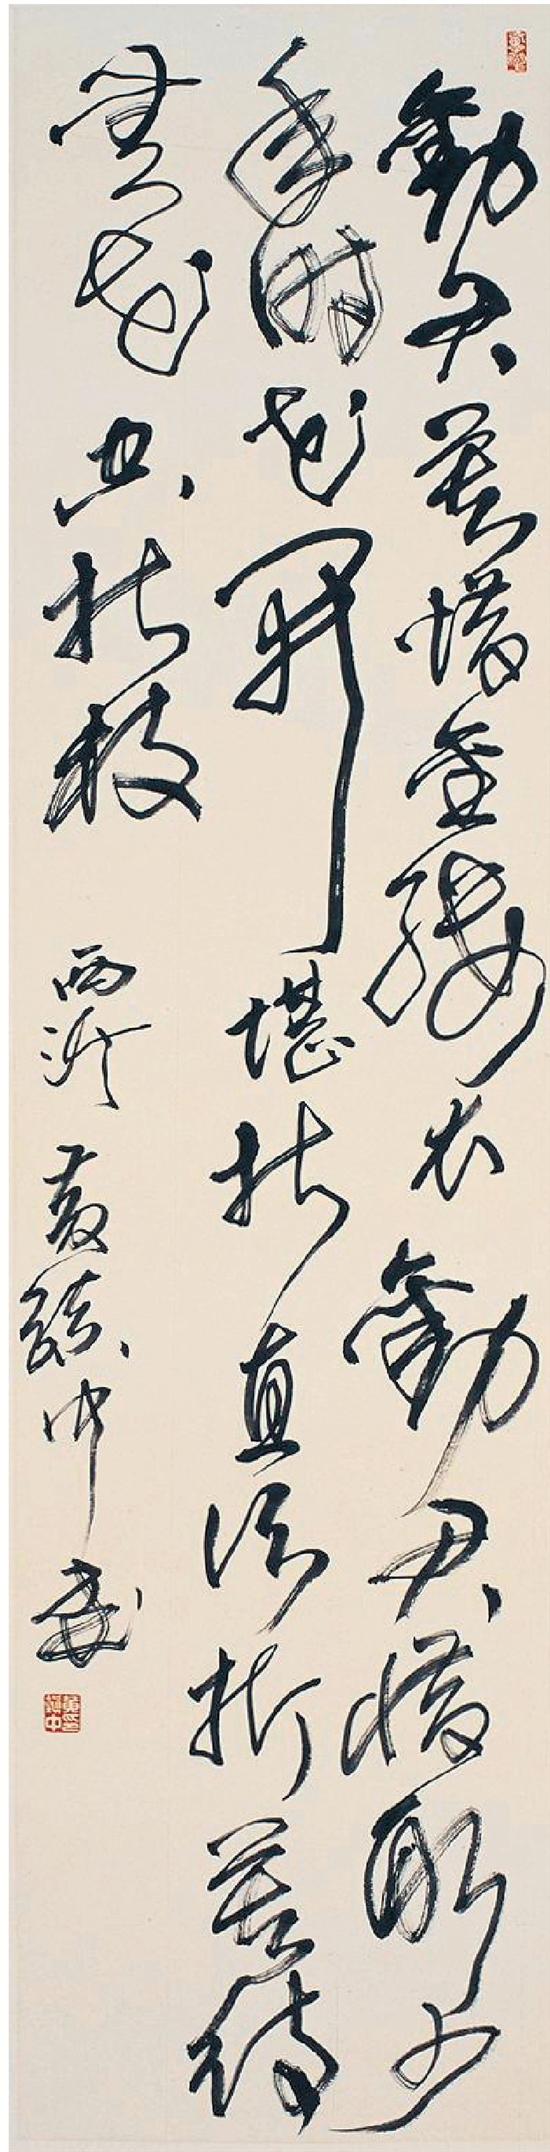 勸君莫惜金縷衣勸君惜取少
年時花開堪折直須折莫待
無花空折枝 西泠 黃鎮中